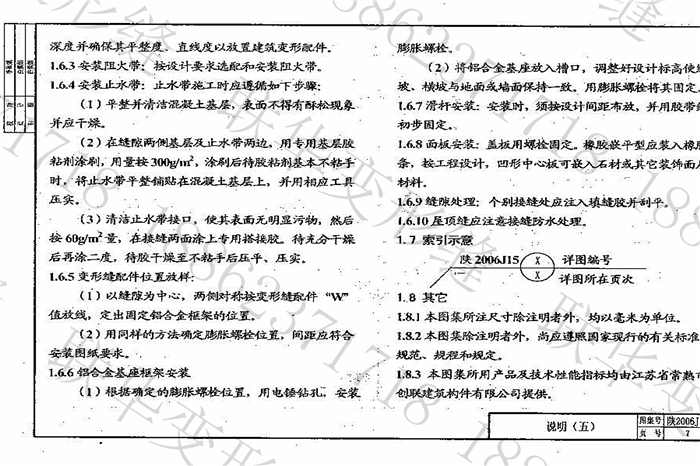 深度并确保其平整度、直线度以放置建筑变形配件。
1.6.3 安装阻火带：按设计要求选配和安装阻火带。
1.6.4 安装止水带：止水带施工时应遵循如下步骤：
（1）平整并清洁混凝土基层，表面不得有酥松现象
并应干燥。
（2）在缝隙两侧基层及止水带两边，用专用基层胶
粘剂涂刷，用量按 300g/m²，涂刷后待胶粘剂基本不粘手
时，将止水带平整铺贴在混凝土基层上，并用相应工具
压实。
（3）清洁止水带接口，使其表面无明显污物，然后
按 60g/m² 量，在接缝两面涂上专用搭接胶。待充分干燥
后再涂二度，待胶干燥至不粘手后压平、压实。
1.6.5 变形缝配件位置放样：
（1）以缝隙为中心，两侧对称按变形缝配件 “W”
值放线，定出固定铝合金框架的位置。
（2）用同样的方法确定膨胀螺栓位置，间距应符合
安装图纸要求。
1.6.6 铝合金基座框架安装
（1）根据确定的膨胀螺栓位置，用电锤钻孔，安装
膨胀螺栓。
（2）将铝合金基座放入槽口，调整好设计标高使
坡、横坡与地面或墙面保持一致，用膨胀螺栓将其固定
1.6.7 滑杆安装：安装时，须按设计间距布放，并用胶带
初步固定。
1.6.8 面板安装：盖板用螺栓固定。橡胶嵌平型应装入橡
条，按工程设计，凹形中心板可嵌入石材或其它装饰面
材料。
1.6.9 缝隙处理：个别接缝处应注入填缝胶并刮平。
1.6.10 屋顶缝应注意接缝防水处理。
1.7 索引示意
陕 2006J15 X 详图编号
X 详图所在页次
1.8 其它
1.8.1 本图集所注尺寸除注明者外，均以毫米为单位。
1.8.2 本图集除注明者外，尚应遵照国家现行的有关标准
规范、规程和规定。
1.8.3 本图集所用产品及技术性能指标均由江苏省常熟
创联建筑构件有限公司提供。
说明（五）
图集号 陕2006J
页 号 7
联华变形缝 18862371718